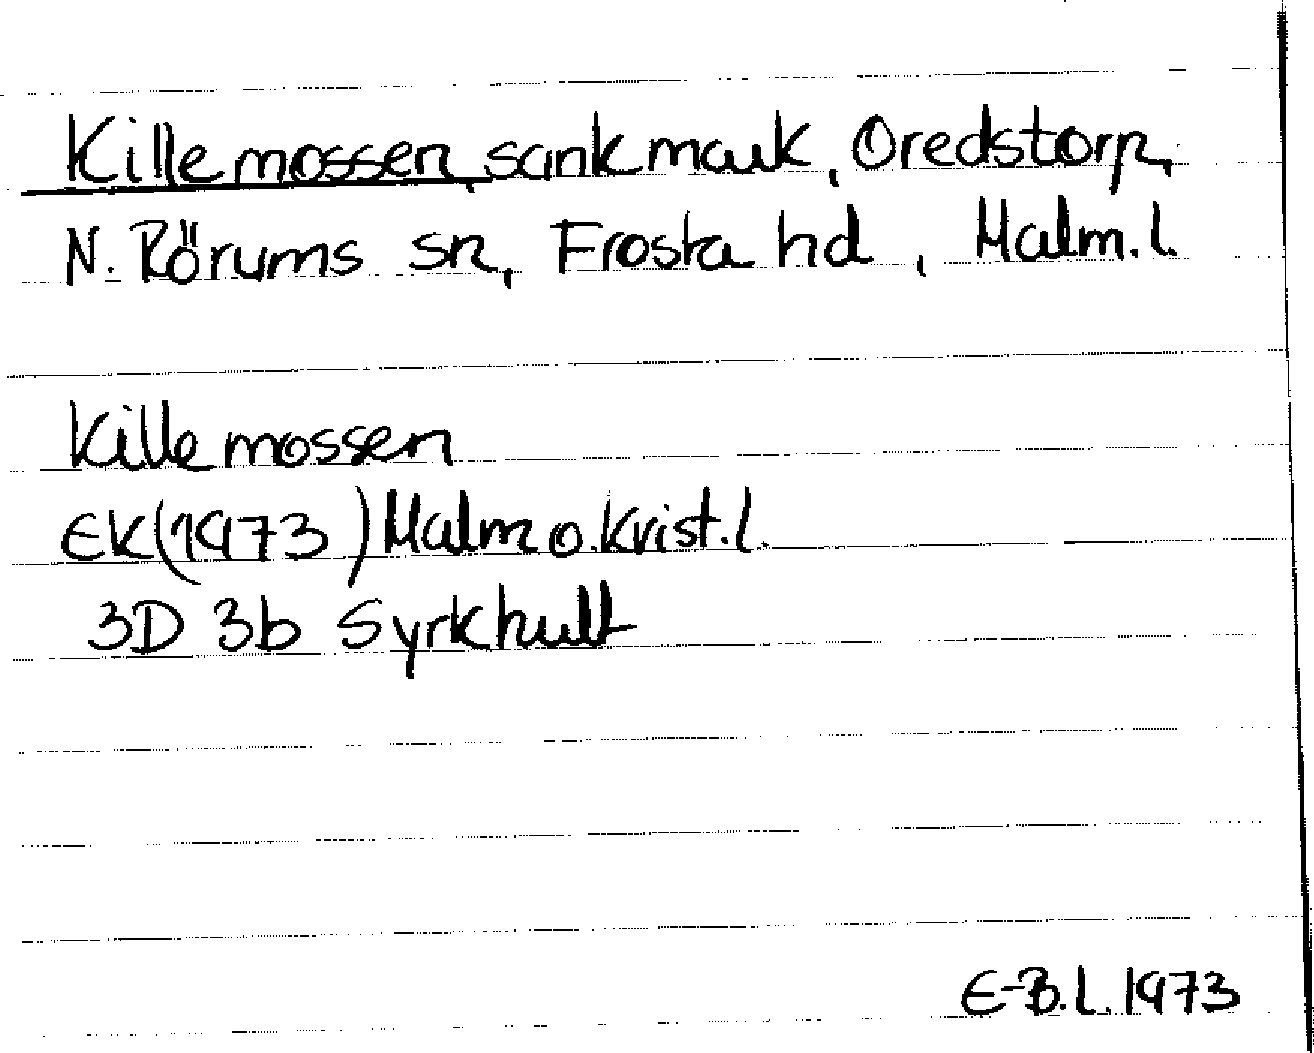 Killemossen, sankmark, Oredstorp,
N. Rörums sn, Frosta hd, Malm. l.
Killemossen
EK(1973) Malm o. Krist. l.
3D 3b Syrkhult
E-B. L. 1973